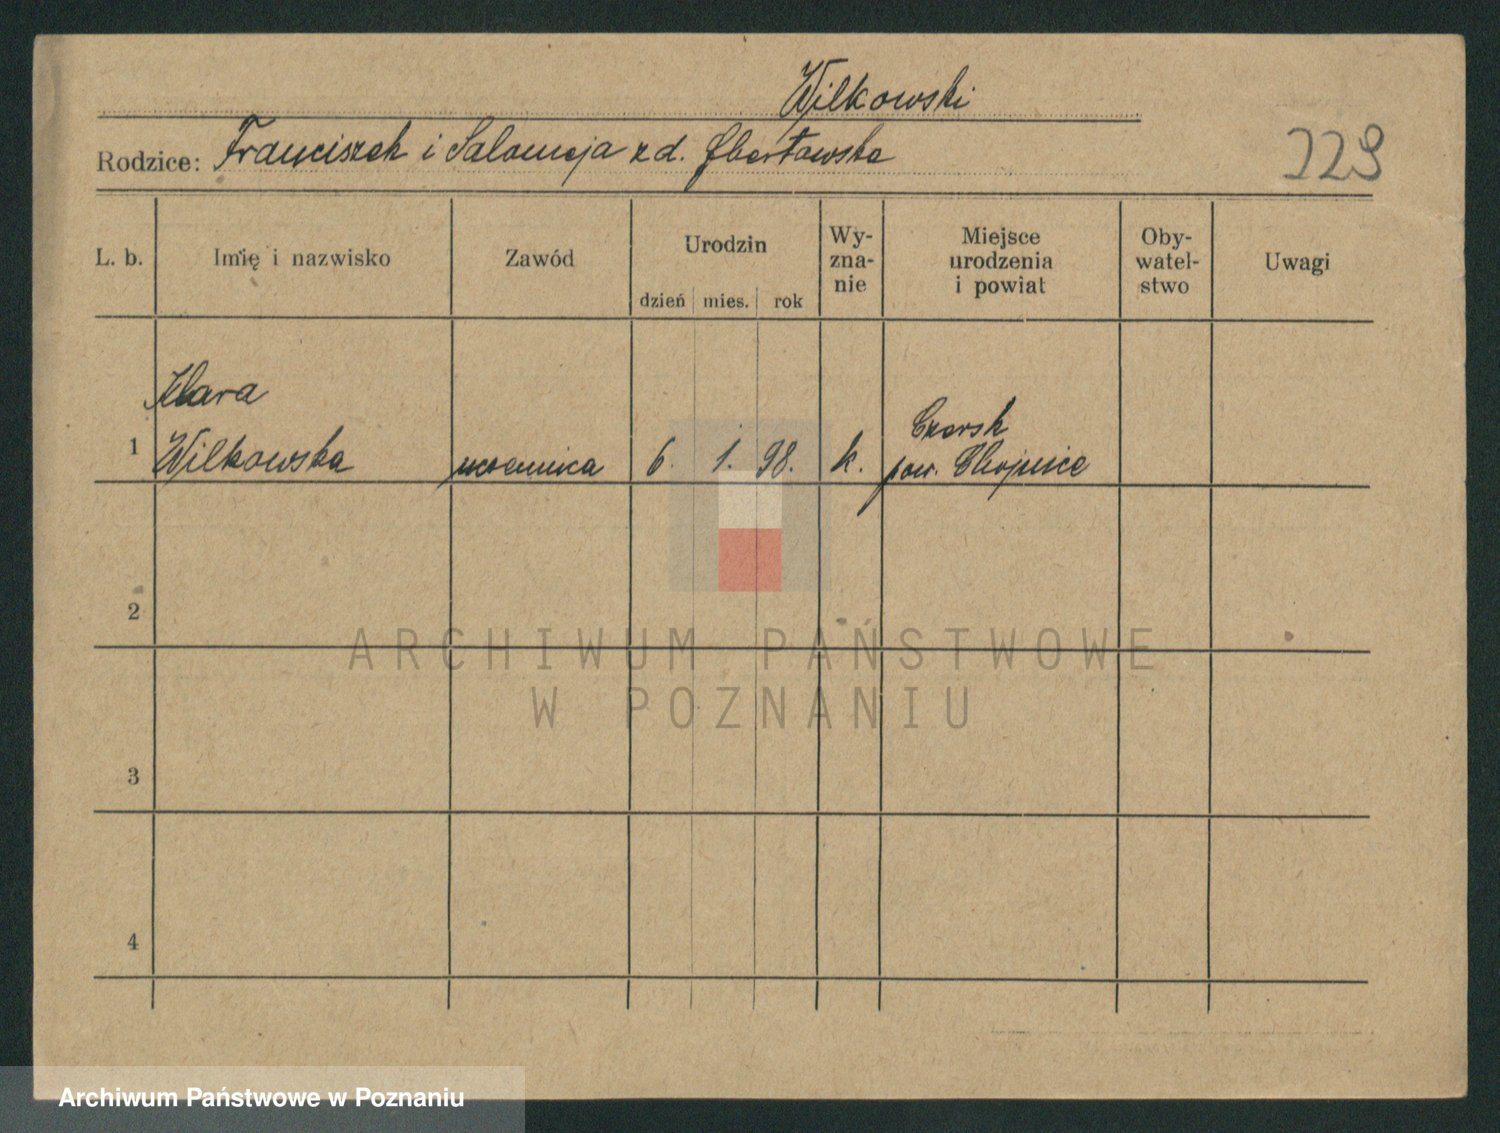 Wilkowski
Rodzice: Franciszek i Salomeja z d.
229
L. b. Imię i nazwisko Zawód Urodzin dzień mies. rok Wy-zna-nie Miejsce urodzenia i powiat Oby-watel-stwo Uwagi
Klara
Czersk
1 Wilkowska uczennica 6. 1. 98. k. pow. Chojnice
2
ARCHIWUM PAŃSTWOWE
W POZNANIU
3
4
Archiwum Państwowe w Poznaniu